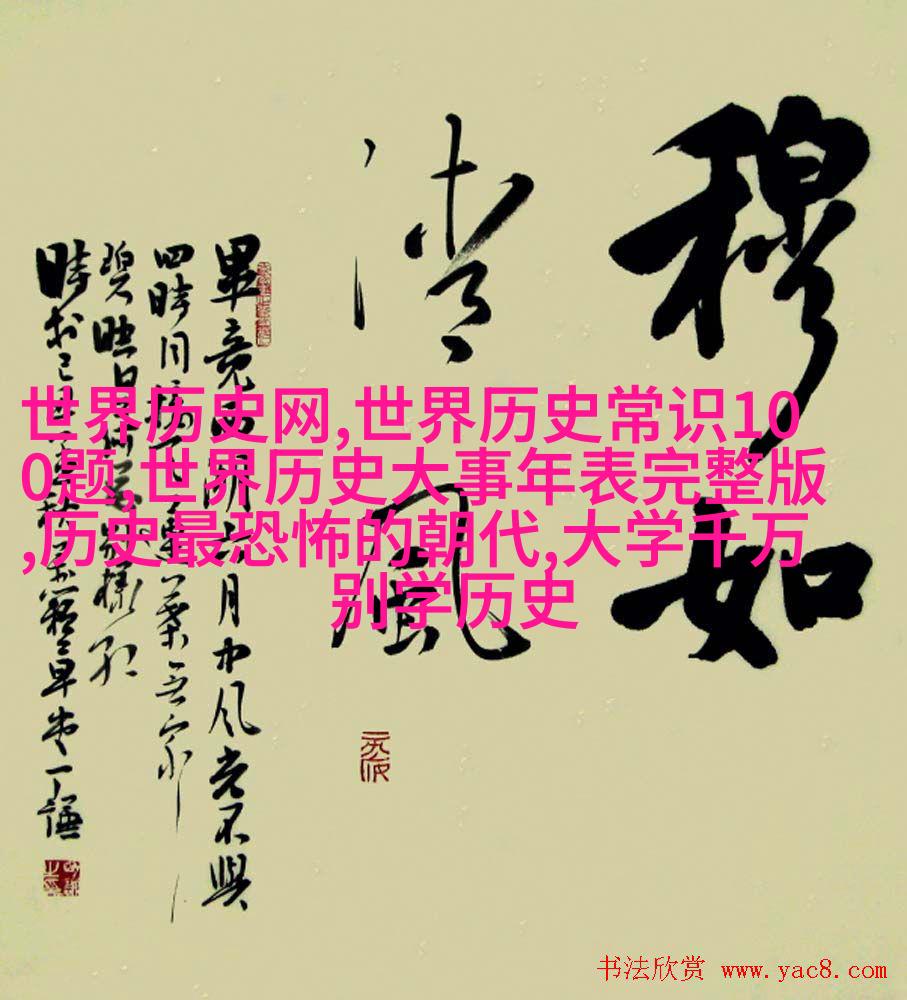 穆如
清風
畢竟西湖六月中風光不與
四時同接天蓮葉無窮
碧映日荷花別樣紅
世界历史网,世界历史常识10
0题,世界历史大事年表完整版
,历史最恐怖的朝代,大学千万
别学历史
书法欣赏 www.yac8.com